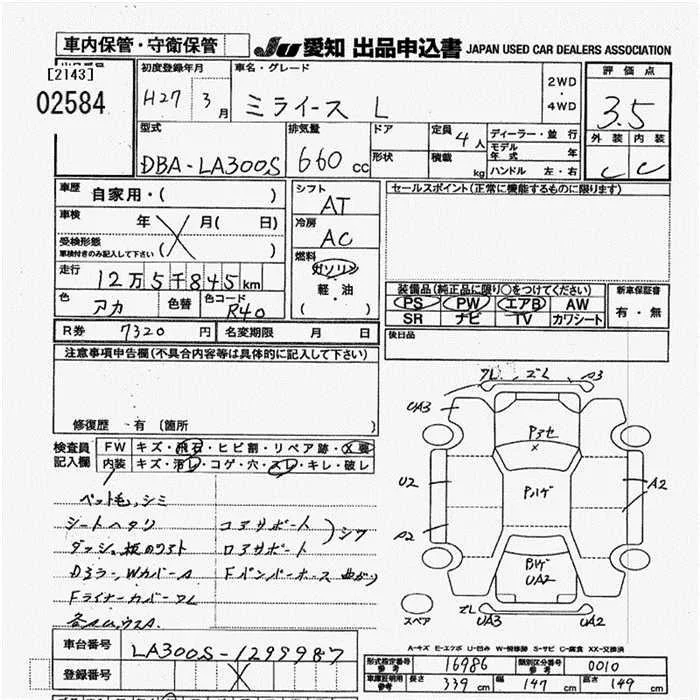 車内保管・守衛保管
JU 愛知 出品申込書 JAPAN USED CAR DEALERS ASSOCIATION
[2143]
02584
初度登録年月 H27 3月
車名・グレード ミライース L
2WD・4WD
評価点 3.5
外装 C 内装 C
型式 DBA-LA300S
排気量 660 cc
ドア
形状
定員 4人
積載 kg
ディーラー・並行
モデル年式 年
ハンドル 左・右
車歴 自家用・( )
シフト AT
セールスポイント(正常に機能するものに限ります)
車検 年 月( 日)
受検形態 車検付きのみ記入して下さい ( )
冷房 AC
走行 12万5千845km
燃料 ガソリン・軽・油 ( )
色 アカ 色替 色コード R40
装備品(純正品に限り○をつけてください)
PS PW エアB AW
SR ナビ TV カワシート
新車保証書 有・無
R券 7320円 名変期限 月 日
後日品
注意事項申告欄(不具合内容等は具体的に記入して下さい)
修復歴 有 (箇所 )
検査員記入欄
FW キズ・飛石・ヒビ割・リペア跡・X要
内装 キズ・汚レ・コゲ・穴・スレ・キレ・破レ
ペット毛,シミ
シートヘタリ コアサポート
ダッシュ板 ロアサポート シワ
Dミラー,WカバーA Fバンパーホース曲がり
Fライナーカバーワレ
ワレ ズレ P3
UA3
PヌケX
U2
Pハゲ
A2
P2
Bハゲ
UA2
ズレ
UA3
UA2
スペア
A-キズ E-エクボ U-凹み W-補修跡 S-サビ C-腐食 XX-交換済
車台番号 LA300S-1299987
登録番号
形式指定番号 参考 16986
類別区分番号 参考 0010
車庫証明用 参考 長さ 339 cm 幅 147 cm 高さ 149 cm